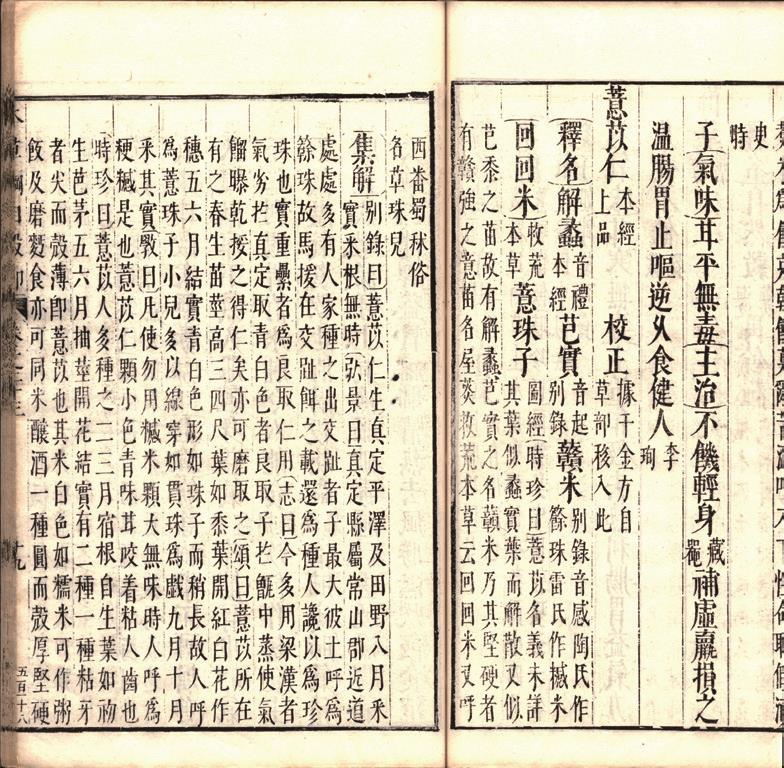 史
時
子氣味甘平無毒主治不饑輕身藏器補虛羸損乏
溫腸胃止嘔逆久食健人李珣
薏苡仁本經上品 校正據千金方自草部移入此
釋名解蠡音禮本經芑實音起別錄贛米別錄音感陶氏作簳珠雷氏作𥼷米
回回米救荒本草薏珠子圖經時珍曰薏苡名義未詳
其葉似蠡實葉而解散又似
芑黍之苗故有解蠡芑實之名贛米乃其堅硬者
有贛強之意苗名屋菼救荒本草云回回米又呼
西番蜀秫俗
名草珠兒
集解別錄曰薏苡仁生真定平澤及田野八月采
實采根無時弘景曰真定縣屬常山郡近道
處處多有人家種之出交趾者子最大彼土呼爲
簳珠故馬援在交趾餌之載還爲種人讒以爲珍
珠也實重纍者爲良取仁用志曰今多用梁漢者
氣劣於真定取青白色者良取子於甑中蒸使氣
餾曝乾挼之得仁矣亦可磨取之頌曰薏苡所在
有之春生苗莖高三四尺葉如黍葉開紅白花作
穗五六月結實青白色形如珠子而稍長故人呼
爲薏珠子小兒多以線穿如貫珠爲戲九月十月
采其實斆曰凡使勿用𥼷米顆大無味時人呼爲
粳𥼷是也薏苡仁顆小色青味甘咬着粘人齒也
時珍曰薏苡人多種之二三月宿根自生葉如初
生芭茅五六月抽莖開花結實有二種一種粘牙
者尖而殼薄即薏苡也其米白色如糯米可作粥
飯及磨麪食亦可同米釀酒一種圓而殼厚堅硬
十九
五百十八